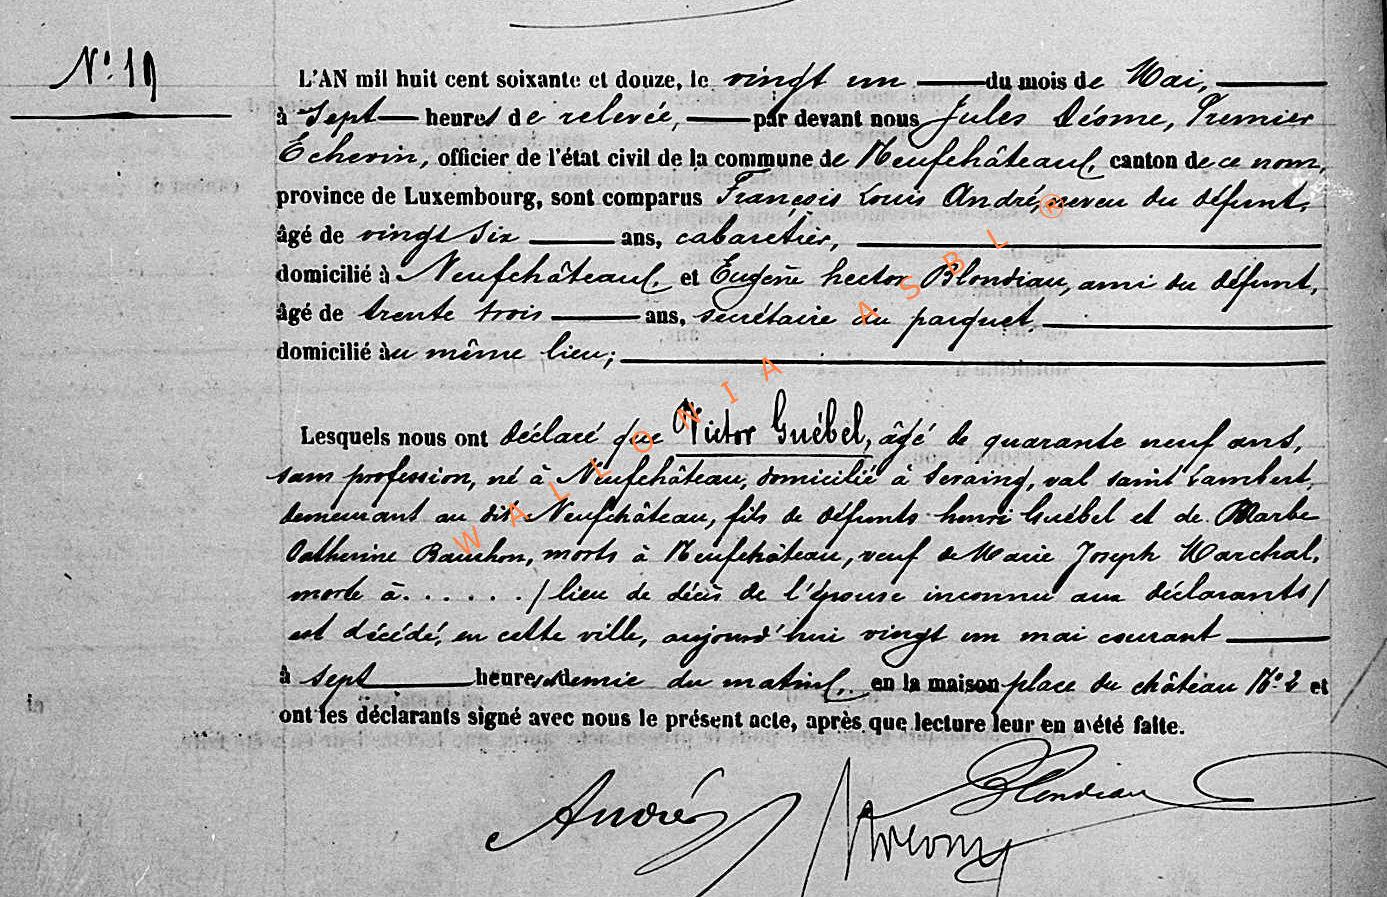 N° 19
L'AN mil huit cent soixante et douze, le vingt un du mois de Mai,
à sept heures de relevée, par devant nous Jules Déome, Premier
Echevin, officier de l'état civil de la commune de Neufchâteau, canton de ce nom,
province de Luxembourg, sont comparus François Louis André, neveu du défunt,
âgé de vingt six ans, cabaretier,
domicilié à Neufchâteau, et Eugène hector Blondiau, ami du défunt,
âgé de trente trois ans, secrétaire du parquet,
domicilié au même lieu;
Lesquels nous ont déclaré que Victor Guébel, âgé de quarante neuf ans,
sans profession, né à Neufchâteau, domicilié à Seraing, val saint Lambert,
demeurant au dit Neufchâteau, fils de défunts henri Guébel et de Barbe
Catherine Bauchon, morts à Neufchâteau, veuf de Marie Joseph Marchal,
morte à ...... / lieu de décès de l'épouse inconnu aux déclarants /
est décédé, en cette ville, aujourd'hui vingt un mai courant
à sept heures et demie du matin, en la maison place du château N° 2 et
ont les déclarants signé avec nous le présent acte, après que lecture leur en a été faite.
André Blondiau
WALLONIA ASBL ®